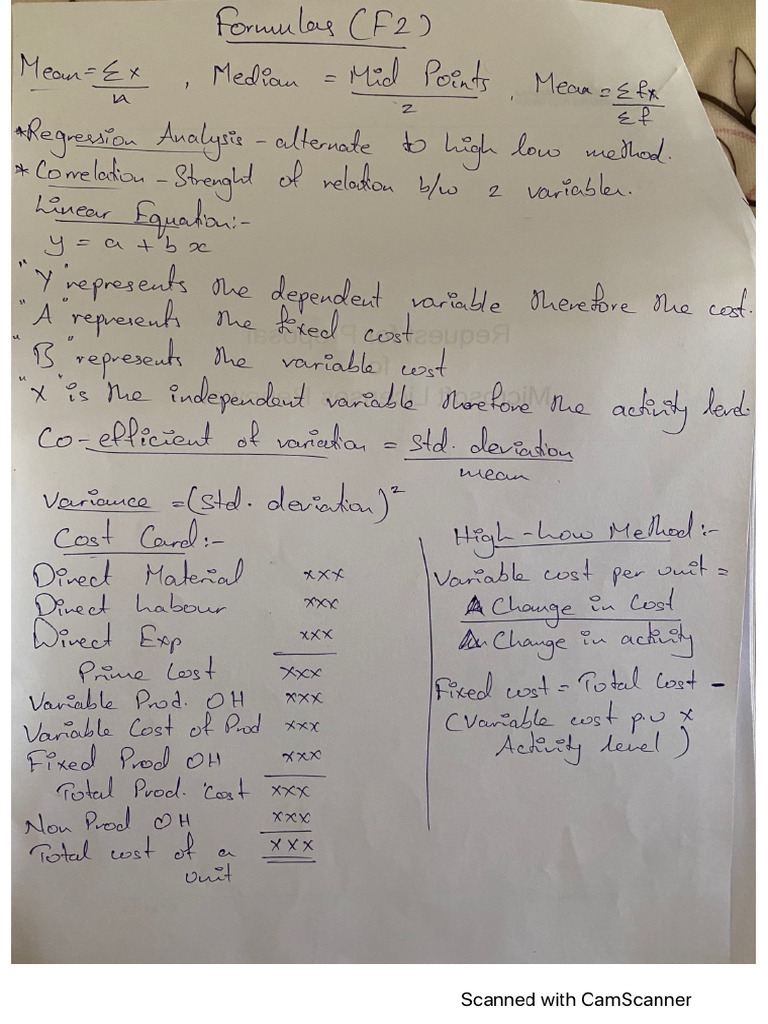 Formulas (F2)
Mean = Σx / n , Median = Mid Points / 2 , Mean = Σfx / Σf
*Regression Analysis - alternate to high low method.
* Correlation - Strenght of relation b/w 2 variables.
Linear Equation:-
y = a + b x
"Y" represents the dependent variable therefore the cost.
"A" represents the fixed cost
"B" represents the variable cost
"X" is the independent variable therefore the activity level.
Co-efficient of variation = std. deviation / mean
Variance = (std. deviation)²
Cost Card:-
Direct Material xxx
Direct Labour xxx
Direct Exp xxx
Prime Cost xxx
Variable Prod. OH xxx
Variable Cost of Prod xxx
Fixed Prod OH xxx
Total Prod. Cost xxx
Non Prod OH xxx
Total cost of a xxx
unit
High-Low Method:-
Variable cost per unit =
Change in Cost
Change in activity
Fixed cost = Total Cost -
(Variable cost p.u x
Activity level)
Request for Proposal
Scanned with CamScanner